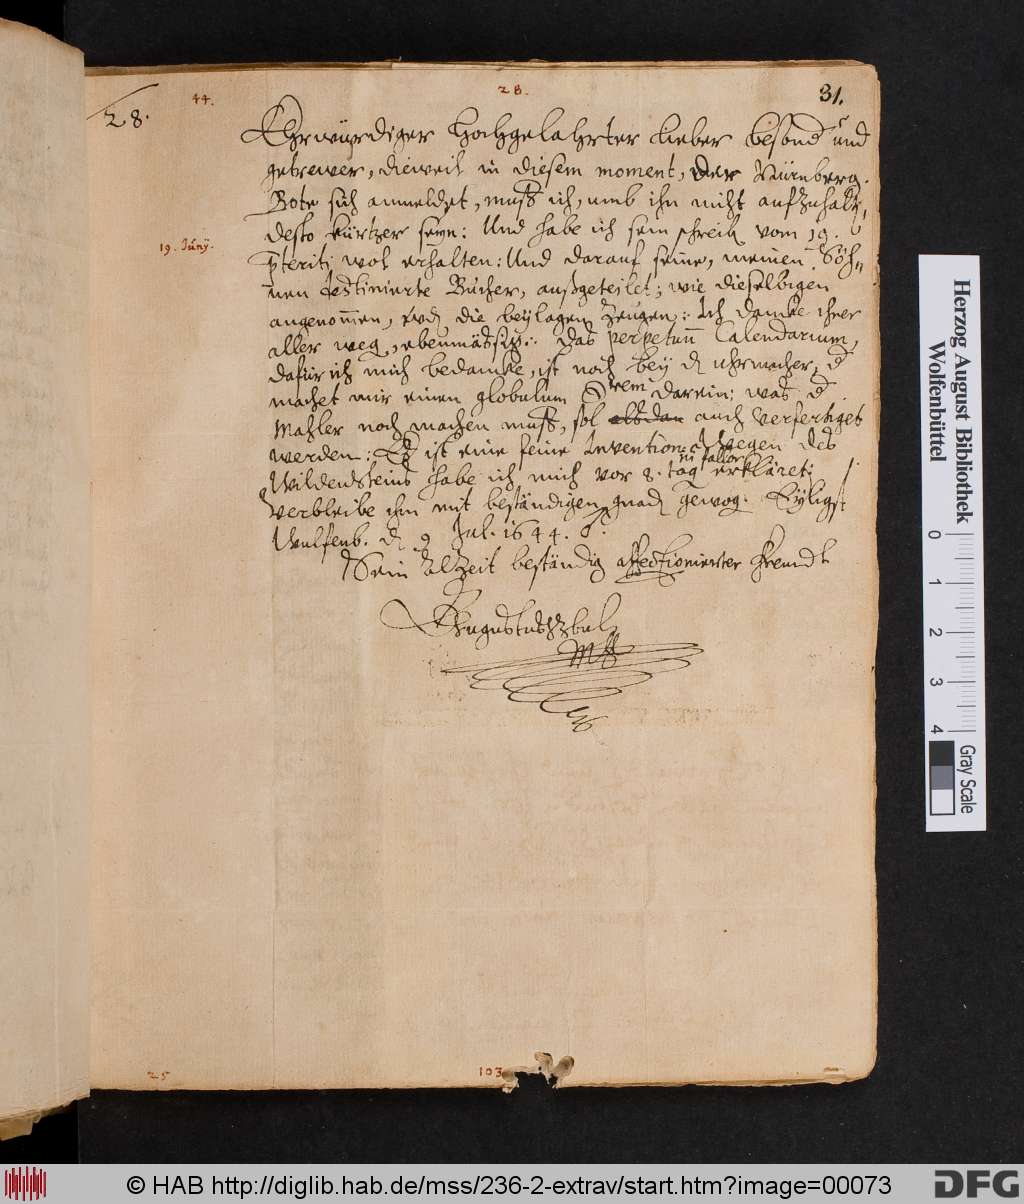 28.
44.
28.
31.
Ehrwürdiger Hochgelahrter lieber besond und
getrewer, dieweil in diesem moment, der Nürnberg.
Bote sich anmeldet, muß ich, umb ihn nicht aufzuhalt,
desto kürtzer seyn: Und habe ich sein schreib vom 19.
19. Junÿ.
pteriti wol erhalten: Und darauf seine, meinen Söh-
nen destinierte Bücher, außgeteilet; wie dieselbigen
angenommen, die beylagen zeugen: Ich dancke ihrer
aller weg, ebenmäßig: das perpetuum Calendarium,
dafür ich mich bedancke, ist noch bey d uhrmacher, d
machet mir einen globulum darein; was d
Mahler noch machen muß, sol auch verfertiget
werden: Es ist eine feine Invention: Wegen des
Wildensteins habe ich mich vor 8. tag erkläret;
ni fallor
verbleibe ihm mit beständigen gnad gewog. Eyligst
Wulfenb. d 9 Jul. 1644.
Sein alzeit beständig affectionierter freundt
Augustus HzBuL
mp
25
103
Herzog August Bibliothek
Wolfenbüttel
0 1 2 3 4
Gray Scale
© HAB http://diglib.hab.de/mss/236-2-extrav/start.htm?image=00073
DFG